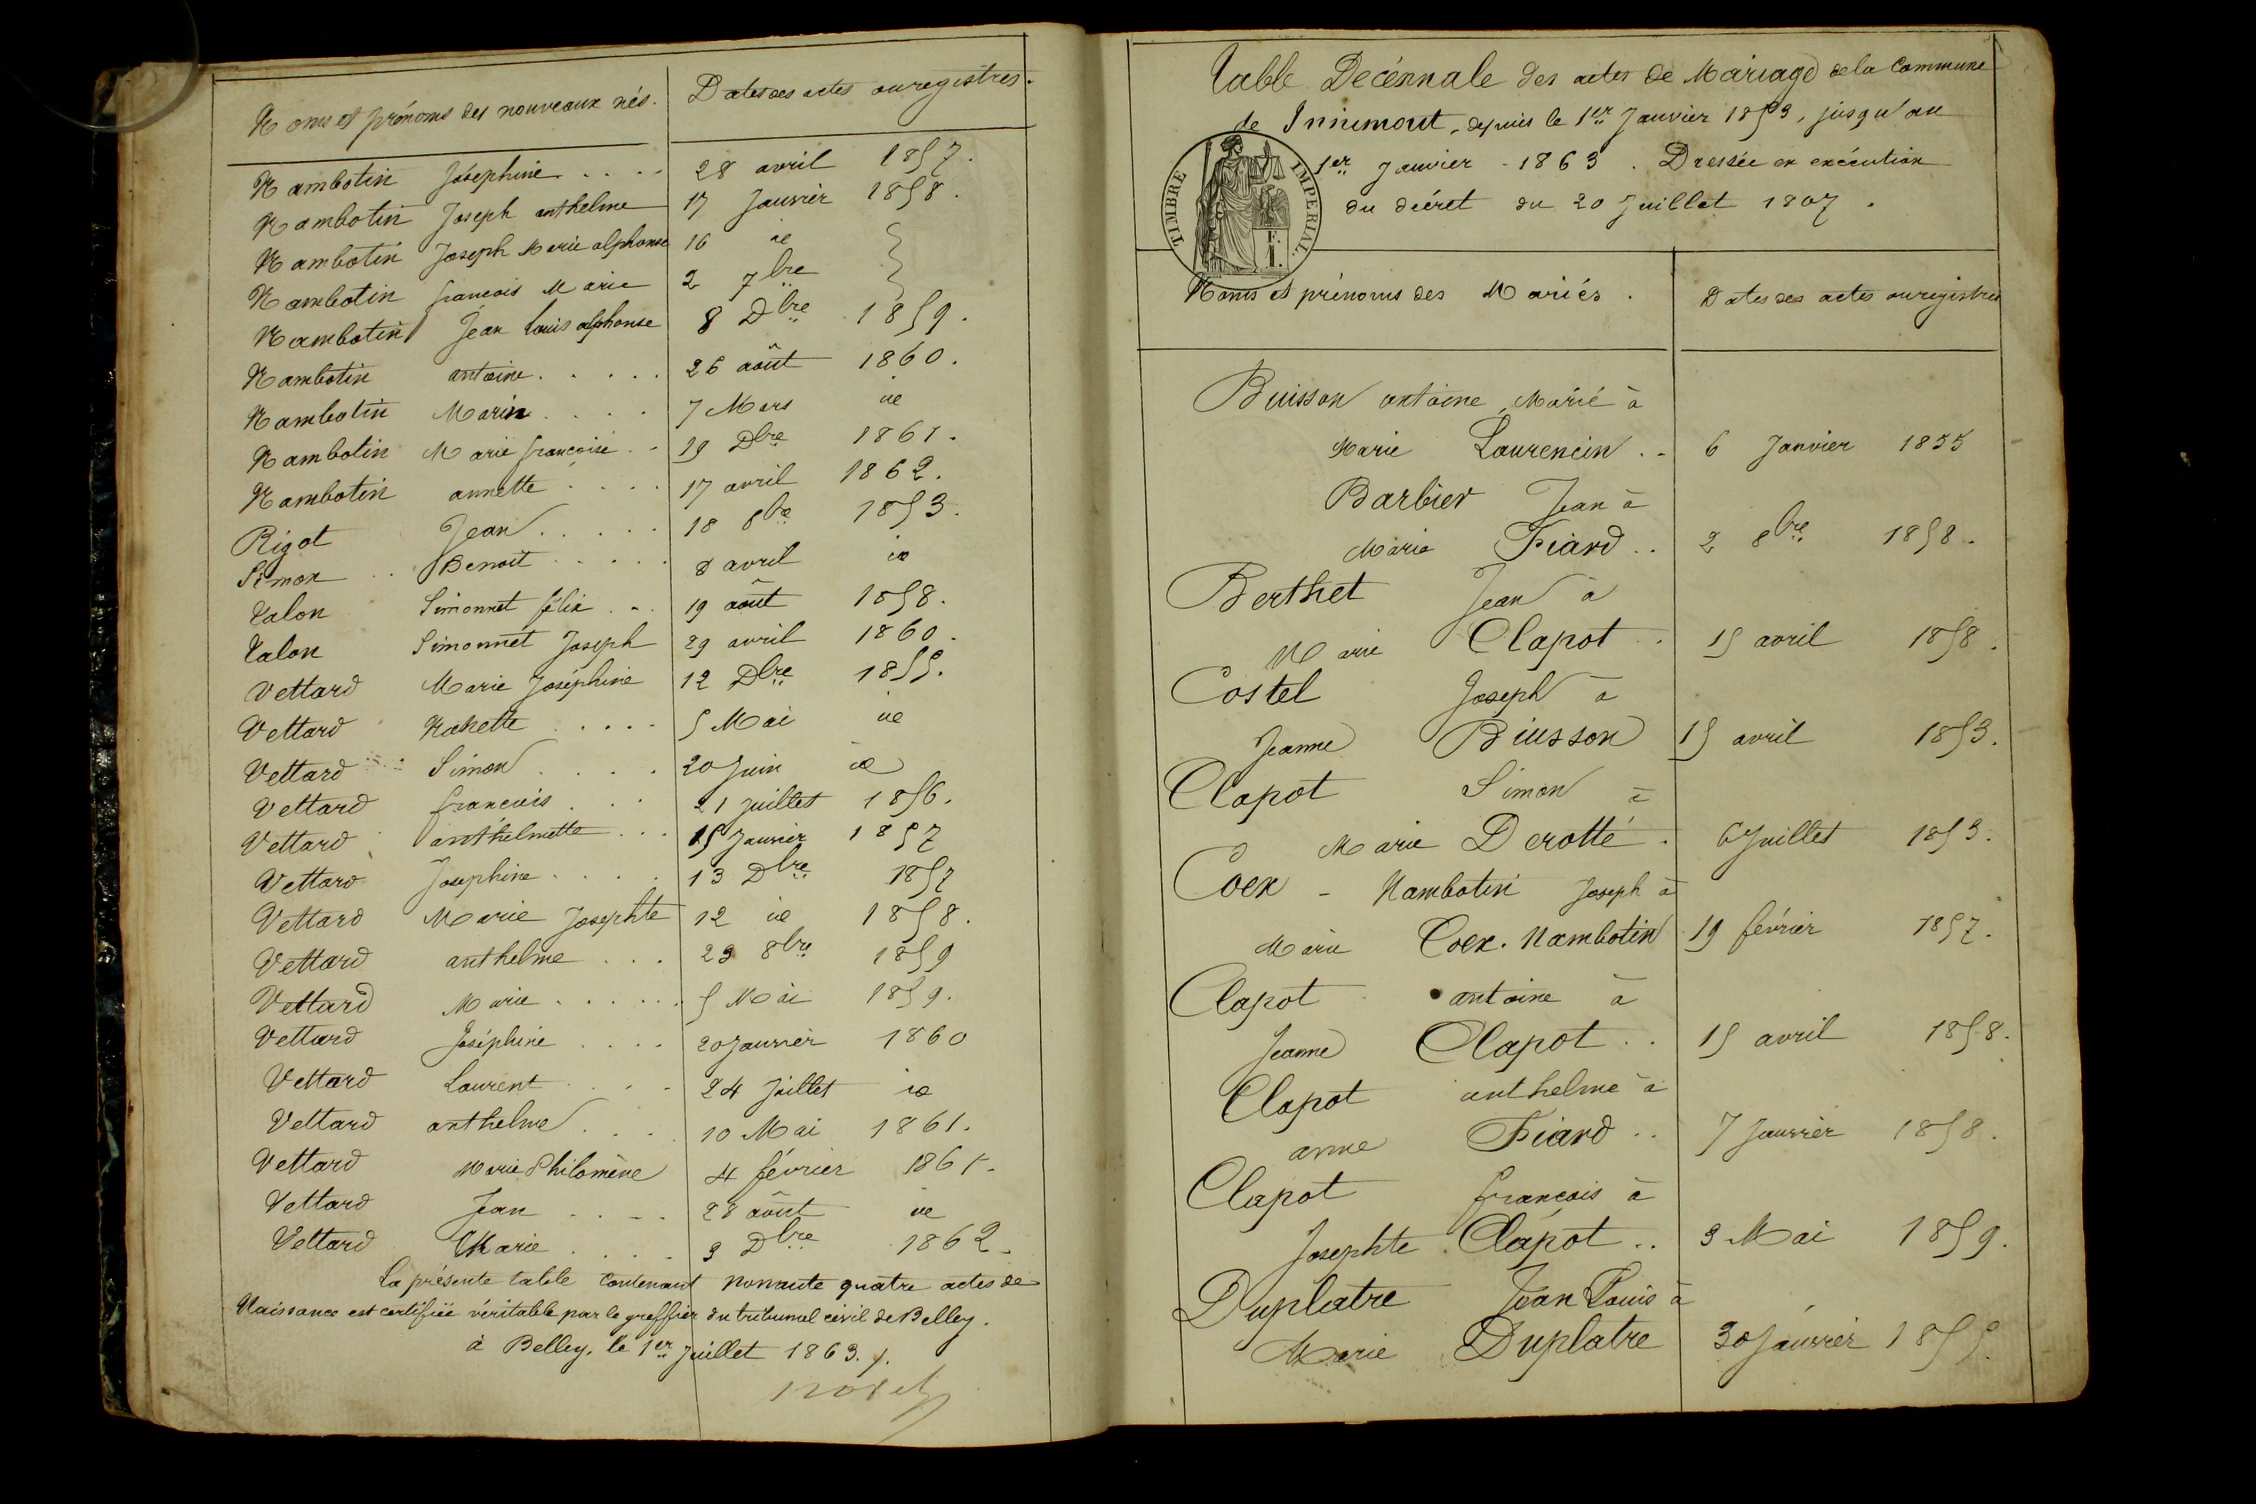 Noms et prénoms des nouveaux nés. Dates des actes aux registres.
Nambotin Joséphine .... 28 avril 1857.
Nambotin Joseph anthelme 17 Janvier 1858.
Nambotin Joseph Marie alphonse 16 id }
Nambotin francois Marie 2 7bre }
Nambotin Jean Louis alphonse 8 Dbre 1859.
Nambotin antoine ..... 26 août 1860.
Nambotin Marin .... 7 Mars id
Nambotin Marie francoise .. 19 Dbre 1861.
Nambotin annette .... 17 avril 1862.
Rigot Jean ..... 18 8bre 1853.
Simon .. Benoit ..... 8 avril id
Talon Simonnet félix ... 19 août 1858.
Talon Simonnet Joseph 29 avril 1860.
Vettard Marie Joséphine 12 Dbre 1855.
Vettard Nanette .... 5 Mai id
Vettard Simon .... 20 Juin id
Vettard francois ... 21 Juillet 1856.
Vettard anthelmette ... 15 Janvier 1857
Vettard Josephine .... 13 Dbre 1857
Vettard Marie Josephte 12 id 1858.
Vettard anthelme ... 23 8bre 1859
Vettard Marie ...... 5 Mai 1859.
Vettard Joséphine .... 20 Janvier 1860
Vettard Laurent .... 24 Juillet id
Vettard anthelme .... 10 Mai 1861.
Vettard Marie Philomène 4 février 1861.
Vettard Jean .... 28 août id
Vettard Marie .... 3 Dbre 1862.
La présente table contenant nonante quatre actes de
Naissance est certifiée véritable par le greffier du tribunal civil de Belley.
à Belley, le 1er Juillet 1863.
Table Decénnale des actes de Mariage de la Commune
de Innimont, depuis le 1er Janvier 1853, jusqu'au
1er Janvier 1863. Dressée en exécution
du décret du 20 Juillet 1807.
TIMBRE IMPERIAL
Noms et prénoms des Mariés. Dates des actes aux registres
Buisson antoine, Marié à
Marie Laurencin .. 6 Janvier 1855
Barbier Jean à
Marie Fiard .. 2 8bre 1858.
Berthet Jean à
Marie Clapot .. 15 avril 1858.
Costel Joseph à
Jeanne Buisson 15 avril 1853.
Clapot Simon à
Marie Derotté . 6 Juillet 1853.
Coex - Nambotin Joseph à
Marie Coex. Nambotin 19 février 1857.
Clapot antoine à
Jeanne Clapot .. 15 avril 1858.
Clapot anthelme à
anne Fiard .. 7 Janvier 1858.
Clapot francois à
Josephte Clapot .. 3 Mai 1859.
Duplatre Jean Louis à
Marie Duplatre 30 Janvier 1855.